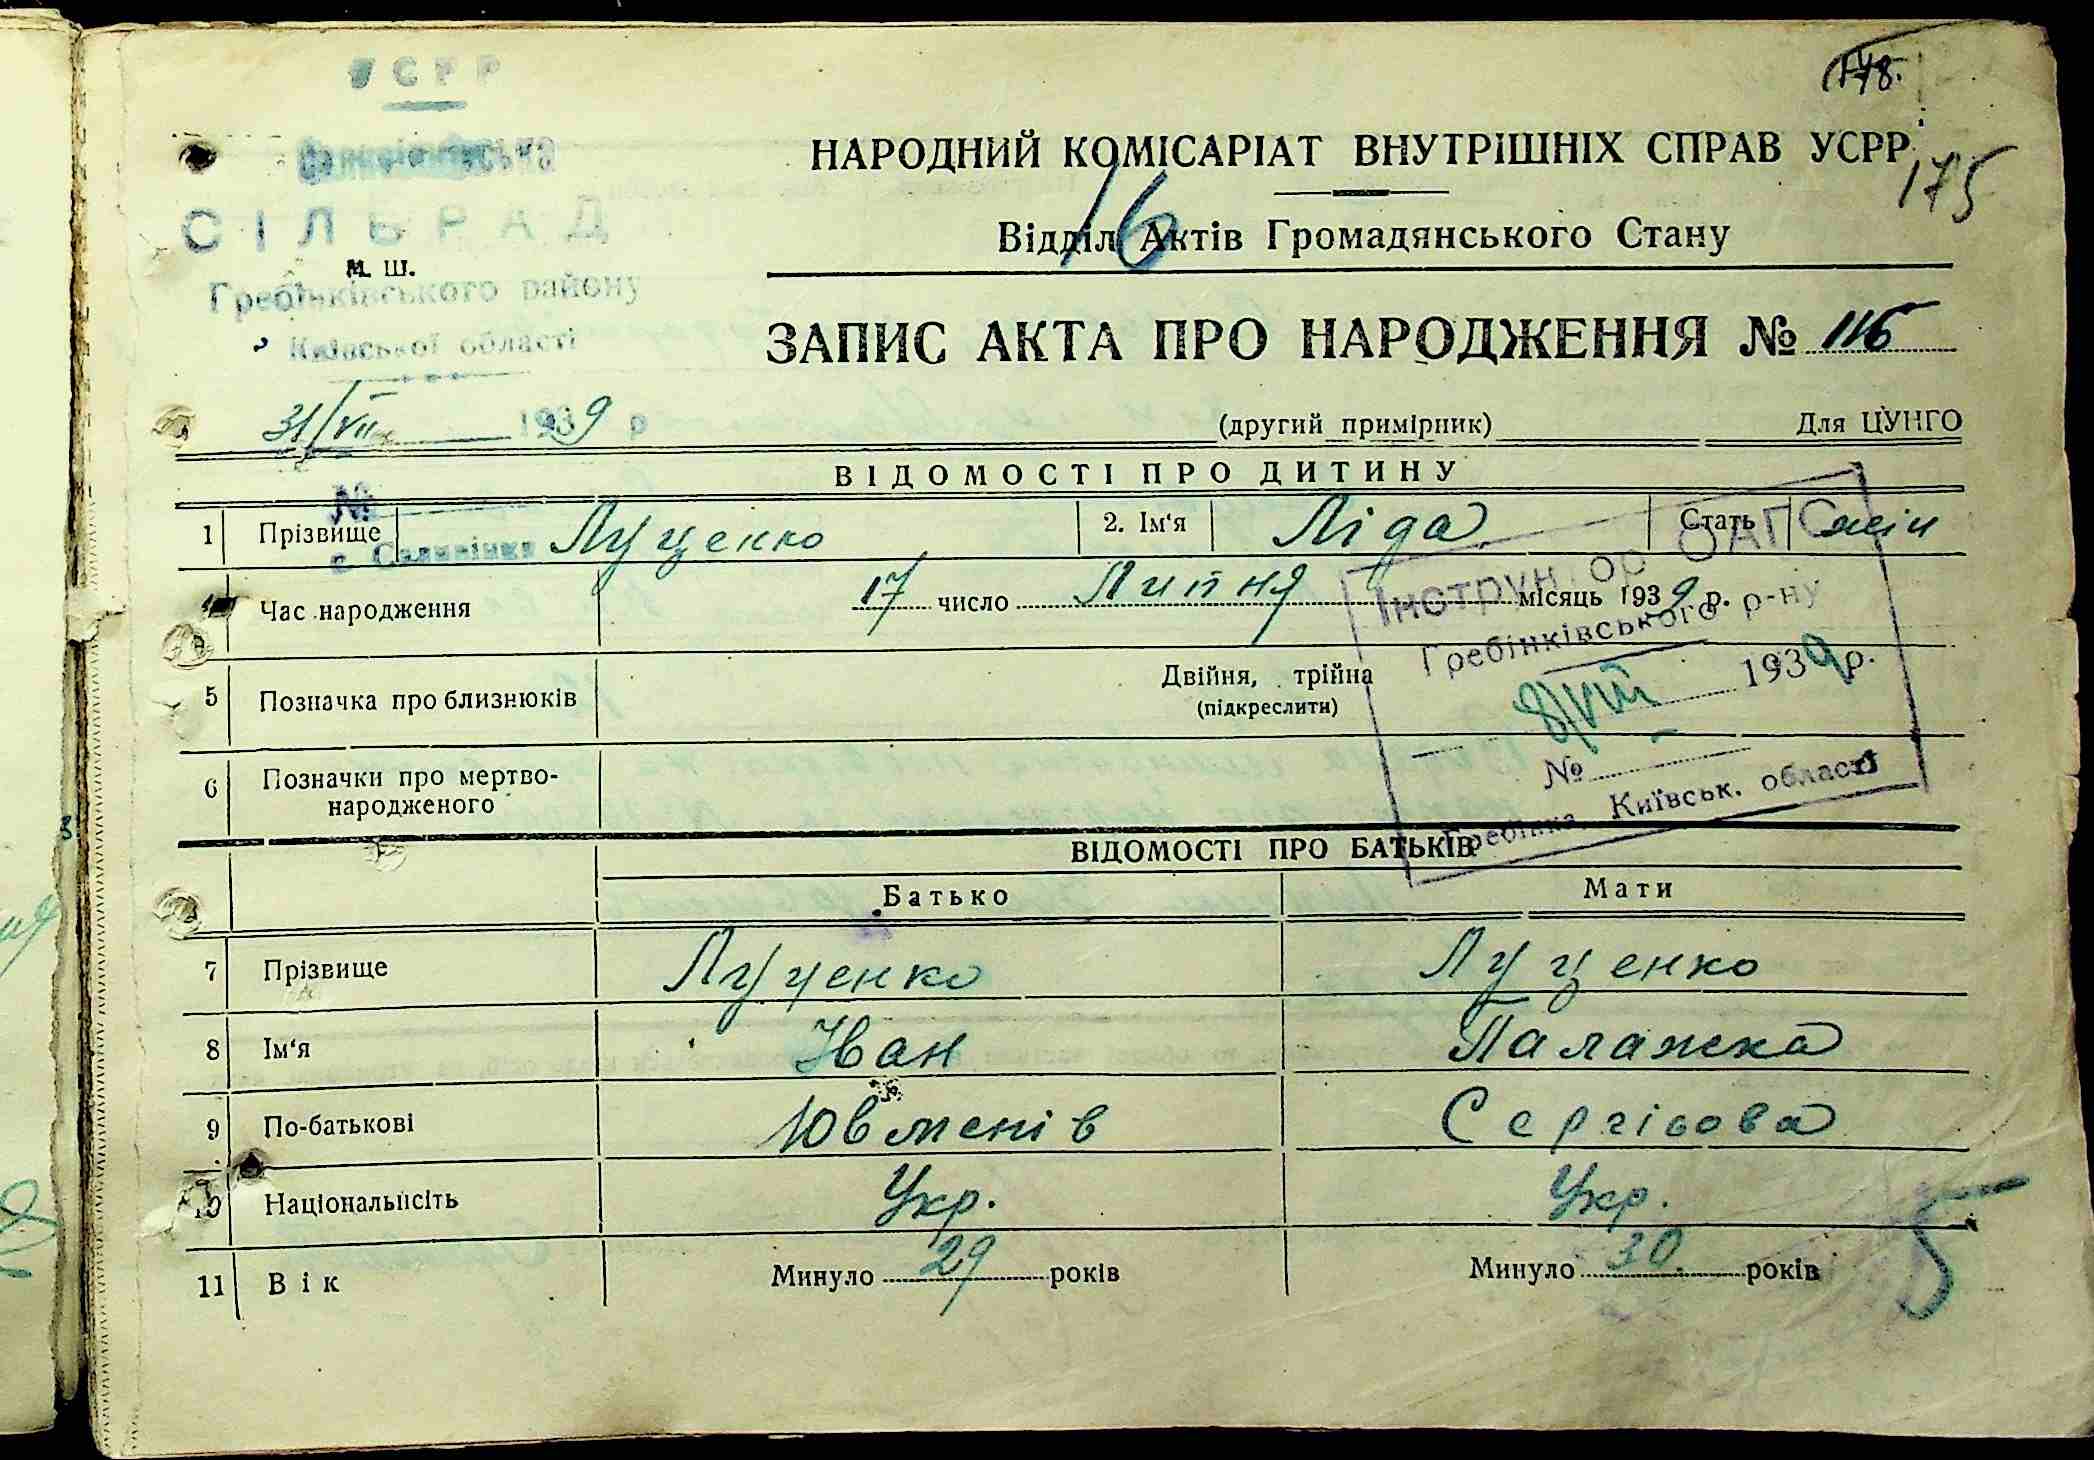 УСРР
178.
НАРОДНИЙ КОМІСАРІАТ ВНУТРІШНІХ СПРАВ УСРР
175
СІЛЬРАДА
16
Відділ Актів Громадянського Стану
м. ш.
Гребінківського району
Київської області
ЗАПИС АКТА ПРО НАРОДЖЕННЯ № 116
31/VII 1939 р
(другий примірник) Для ЦУНГО
ВІДОМОСТІ ПРО ДИТИНУ
№
с. Саливінки
1 Прізвище Луценко 2. Ім'я Ліда Стать жін
Інструктор ОАГС
Гребінківського р-ну
8/VIII 1939 р.
№
Гребінка, Київськ. області
4 Час народження 17 число Липня місяць 1939 р.
5 Позначка про близнюків Двійня, трійна
(підкреслити)
6 Позначки про мертво-
народженого
ВІДОМОСТІ ПРО БАТЬКІВ
Батько Мати
7 Прізвище Луценко Луценко
8 Ім'я Іван Палажка
9 По-батькові Ювменів Сергієова
10 Національність Укр. Укр.
11 Вік Минуло 29 років Минуло 30 років
5